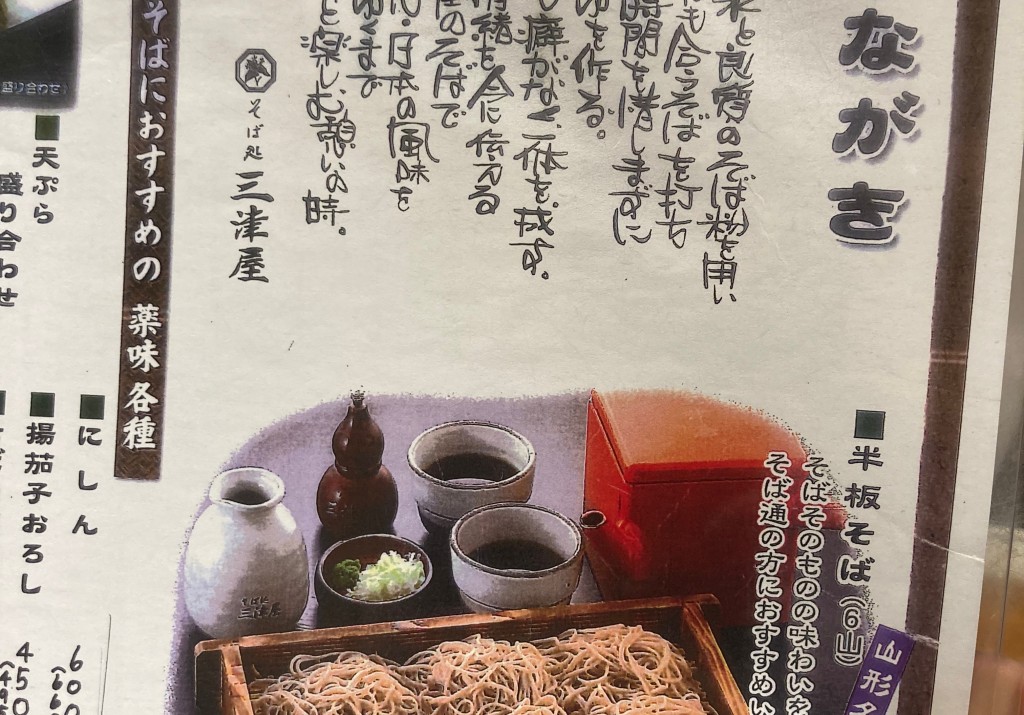 ながき
水と良質のそば粉を用い
も合うそばを打ち
時間を惜しまずに
ゆを作る。
癖がなく、一体を成す。
情緒を今に伝える
のそばで
日本の風味を
くまで
と楽しむ憩いの時。
そば処 三津屋
■半板そば(6山)
そばそのものの味わいを
そば通の方におすすめい
山形名
そばにおすすめの 薬味各種
盛り合わせ)
■天ぷら
盛り合わせ
■にしん
■揚茄子おろし
600
450
三津屋